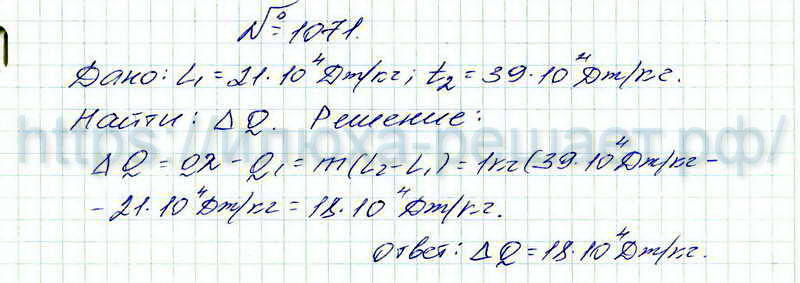 № 1071.
Дано: L₁ = 21·10⁴ Дж/кг; t₂ = 39·10⁴ Дж/кг.
Найти: ΔQ. Решение:
ΔQ = Q2 - Q₁ = m(L₂-L₁) = 1кг(39·10⁴ Дж/кг -
- 21·10⁴ Дж/кг = 18·10⁴ Дж/кг.
Ответ: ΔQ = 18·10⁴ Дж/кг.
https://илюха-решает.рф/